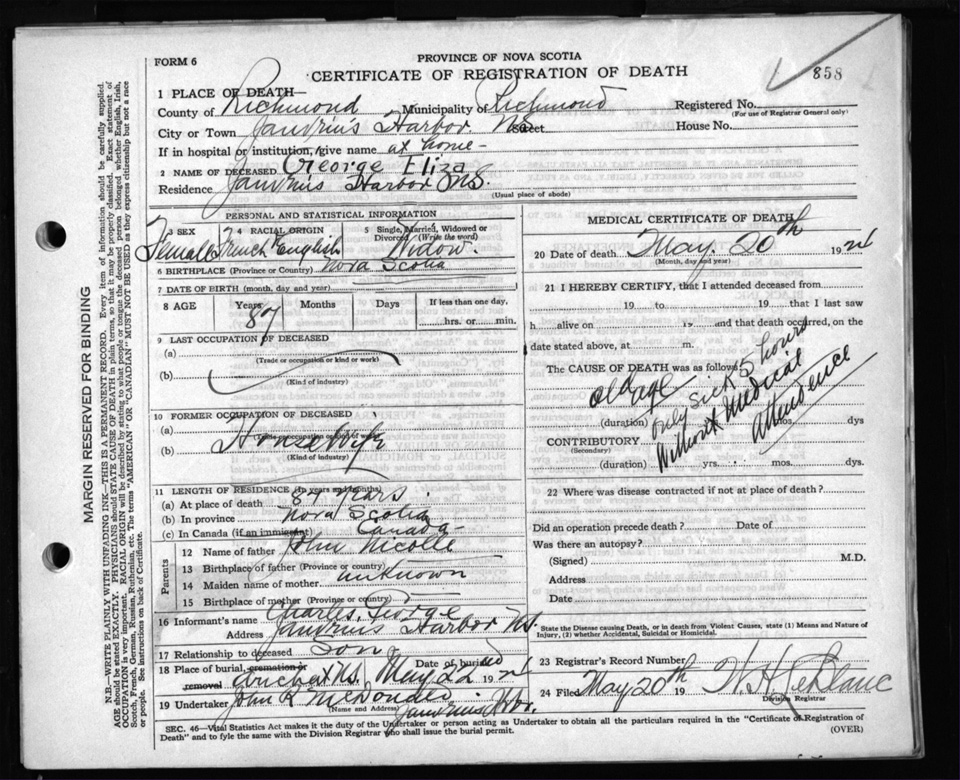 FORM 6
PROVINCE OF NOVA SCOTIA
CERTIFICATE OF REGISTRATION OF DEATH
858
1 PLACE OF DEATH—
County of Richmond Municipality of Richmond Registered No.
(For use of Registrar General only)
City or Town Janvrins Harbor NS. Street House No.
If in hospital or institution, give name at home
2 NAME OF DECEASED George Eliza
Residence Janvrins Harbor NS.
(Usual place of abode)
PERSONAL AND STATISTICAL INFORMATION
3 SEX 4 RACIAL ORIGIN 5 Single, Married, Widowed or Divorced (Write the word)
Female French English Widow
6 BIRTHPLACE (Province or Country) Nova Scotia
7 DATE OF BIRTH (Month, day and year)
8 AGE Years Months Days If less than one day,
87 hrs. or min.
9 LAST OCCUPATION OF DECEASED
(a)
(Trade or occupation or kind or work)
(b)
(Kind of industry)
10 FORMER OCCUPATION OF DECEASED
(a)
Housewife
(b)
(Kind of industry)
11 LENGTH OF RESIDENCE (In years and months)
(a) At place of death 87 years
(b) In province Nova Scotia
(c) In Canada (if an immigrant) Canada
Parents
12 Name of father John Nicolle
13 Birthplace of father (Province or country)
14 Maiden name of mother unknown
15 Birthplace of mother (Province or country)
16 Informant's name Charles George
Address Janvrins Harbor NS.
17 Relationship to deceased Son
18 Place of burial, cremation or removal Arichat NS. Date of burial May 22nd 192
19 Undertaker John R McDonald
(Name and Address) Janvrins Hbr.
MEDICAL CERTIFICATE OF DEATH
20 Date of death May. 20th 192
(Month, day and year)
21 I HEREBY CERTIFY, that I attended deceased from
19 to 19 that I last saw
h alive on 19 and that death occurred, on the
date stated above, at m.
The CAUSE OF DEATH was as follows:
old age only Sick 5 hours
Without Medical
Attendence
(duration) dys
CONTRIBUTORY
(Secondary)
(duration) yrs. mos. dys.
22 Where was disease contracted if not at place of death?
Did an operation precede death? Date of
Was there an autopsy?
(Signed) M.D.
Address
Date
State the Disease causing Death, or in death from Violent Causes, state (1) Means and Nature
of Injury, (2) whether Accidental, Suicidal or Homicidal.
23 Registrar's Record Number
24 Filed May 20th 19 W. H. LeBlanc
Division Registrar
SEC. 46—Vital Statistics Act makes it the duty of the Undertaker or person acting as Undertaker to obtain all the particulars required in the "Certificate of Registration of
Death" and to fyle the same with the Division Registrar who shall issue the burial permit.
(OVER)
MARGIN RESERVED FOR BINDING
N.B.—WRITE PLAINLY WITH UNFADING INK—THIS IS A PERMANENT RECORD. Every item of information should be carefully supplied.
AGE should be stated EXACTLY. PHYSICIANS should STATE CAUSE OF DEATH in plain terms, so that it may be properly classified. Exact statement of
OCCUPATION is very important. RACIAL ORIGIN will be described by stating to what people or tongue the deceased person belonged whether English, Irish,
Scotch, French, German, Russian, Ruthenian, etc. The terms "AMERICAN" OR "CANADIAN" MUST NOT BE USED as they express citizenship but not a race
or people. See instructions on back of Certificate.